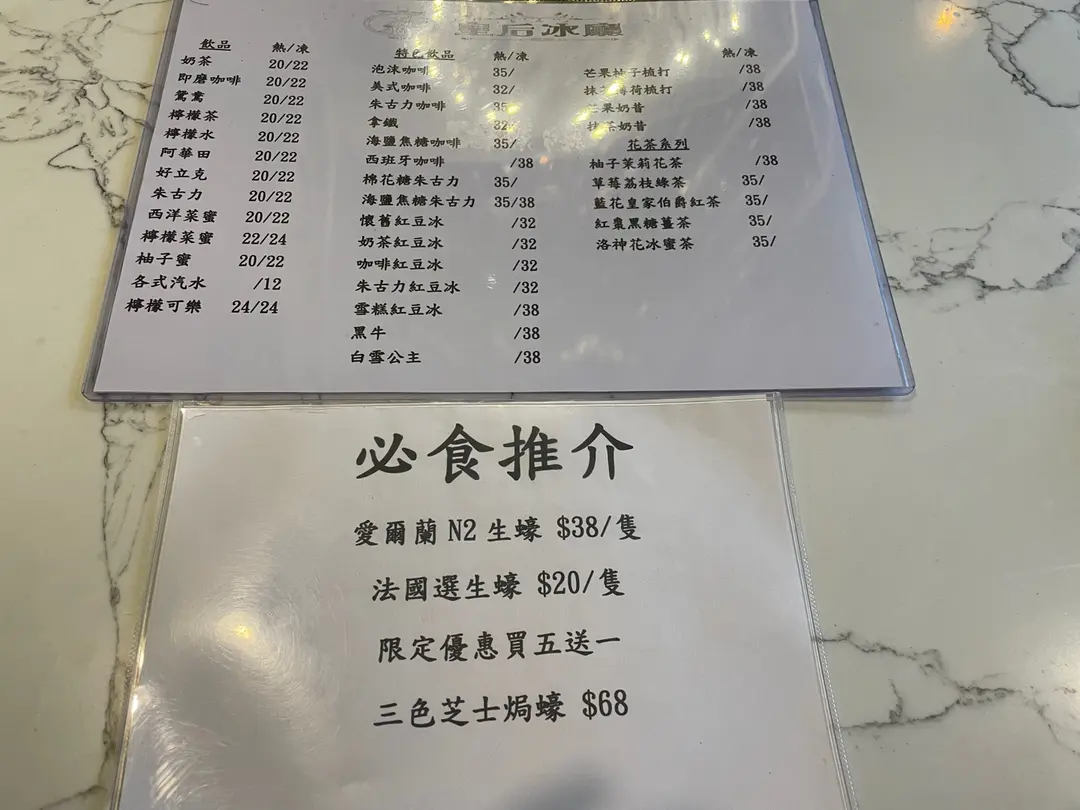 皇后冰廳
飲品 熱/凍
奶茶 20/22
即磨咖啡 20/22
鴛鴦 20/22
檸檬茶 20/22
檸檬水 20/22
阿華田 20/22
好立克 20/22
朱古力 20/22
西洋菜蜜 20/22
檸檬菜蜜 22/24
柚子蜜 20/22
各式汽水 /12
檸檬可樂 24/24
特色飲品 熱/凍
泡沫咖啡 35/
美式咖啡 32/
朱古力咖啡 35
拿鐵 32/
海鹽焦糖咖啡 35/
西班牙咖啡 /38
棉花糖朱古力 35/
海鹽焦糖朱古力 35/38
懷舊紅豆冰 /32
奶茶紅豆冰 /32
咖啡紅豆冰 /32
朱古力紅豆冰 /32
雪糕紅豆冰 /38
黑牛 /38
白雪公主 /38
熱/凍
芒果柚子梳打 /38
抹茶薄荷梳打 /38
芒果奶昔 /38
抹茶奶昔 /38
花茶系列
柚子茉莉花茶 /38
草莓荔枝綠茶 35/
藍花皇家伯爵紅茶 35/
紅棗黑糖薑茶 35/
洛神花冰蜜茶 35/
必食推介
愛爾蘭 N2 生蠔 $38/隻
法國選生蠔 $20/隻
限定優惠買五送一
三色芝士焗蠔 $68